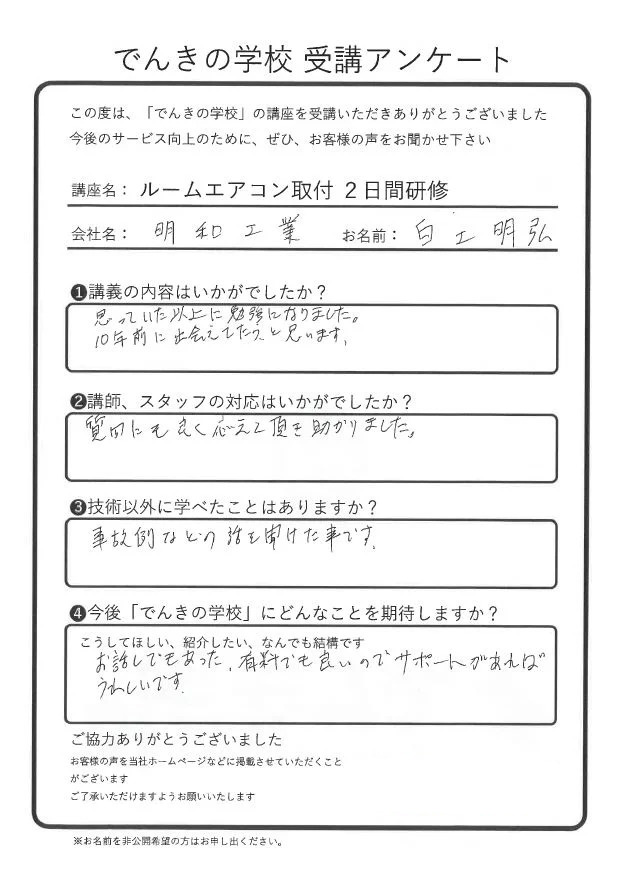 でんきの学校 受講アンケート
この度は、「でんきの学校」の講座を受講いただきありがとうございました
今後のサービス向上のために、ぜひ、お客様の声をお聞かせ下さい
講座名： ルームエアコン取付 ２日間研修
会社名： 明和工業 お名前： 白工明弘
❶講義の内容はいかがでしたか？
思っていた以上に勉強になりました。
10年前に出会えてたらと思います。
❷講師、スタッフの対応はいかがでしたか？
質問にも良く応えて頂き助かりました。
❸技術以外に学べたことはありますか？
事故例などの話を聞けた事です。
❹今後「でんきの学校」にどんなことを期待しますか？
こうしてほしい、紹介したい、なんでも結構です
お話しでもあった、有料でも良いのでサポートがあれば
うれしいです。
ご協力ありがとうございました
お客様の声を当社ホームページなどに掲載させていただくこと
がございます
ご了承いただけますようお願いいたします
※お名前を非公開希望の方はお申し出ください。